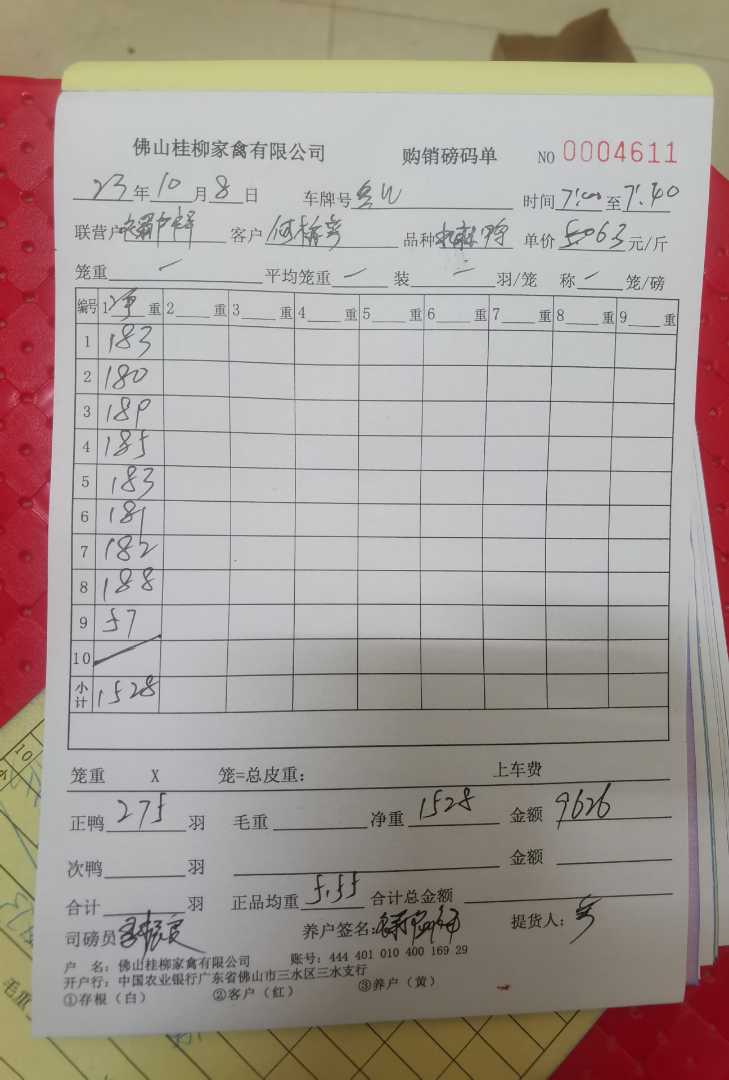 佛山桂柳家禽有限公司 购销磅码单 NO 0004611
23年10月8日 车牌号 时间7:00至7:40
联营户 客户 品种 单价 63元/斤
笼重 一 平均笼重 一 装 一 羽/笼 称 一 笼/磅
编号 1净重 2 重 3 重 4 重 5 重 6 重 7 重 8 重 9 重
1 183
2 180
3 189
4 185
5 183
6 181
7 182
8 188
9 57
10
小计 1528
笼重 X 笼=总皮重: 上车费
正鸭275羽 毛重 净重1528 金额9626
次鸭 羽 金额
合计 羽 正品均重5.55 合计总金额
司磅员 养户签名: 提货人:
户 名: 佛山桂柳家禽有限公司 账号: 444 401 010 400 169 29
开户行: 中国农业银行广东省佛山市三水区三水支行
①存根(白) ②客户(红) ③养户(黄)
10
毛重